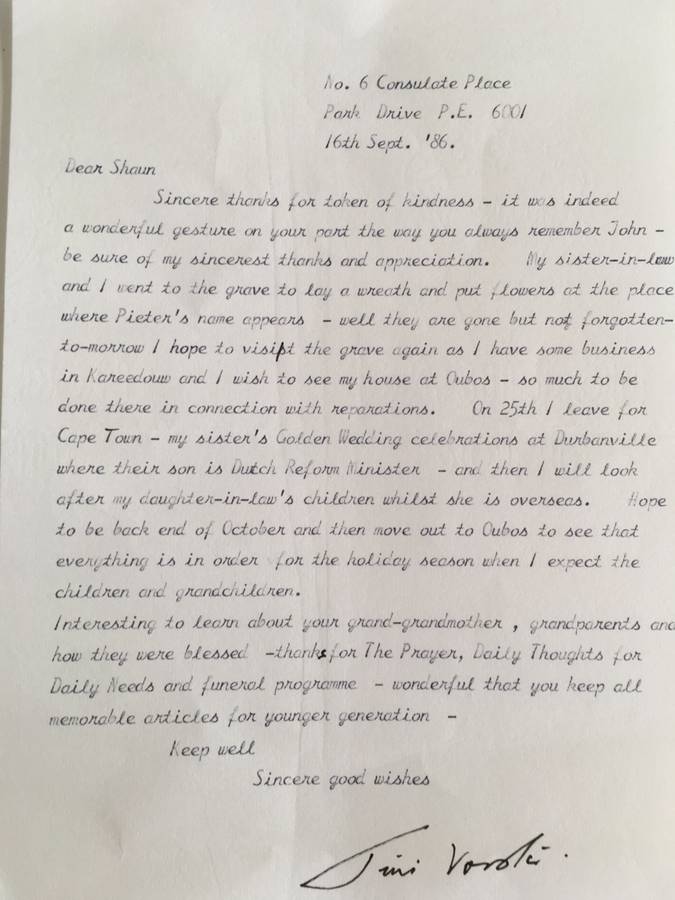 No. 6 Consulate Place
Park Drive P.E. 6001
16th Sept. '86.
Dear Shaun
Sincere thanks for token of kindness - it was indeed
a wonderful gesture on your part the way you always remember John -
be sure of my sincerest thanks and appreciation. My sister-in-law
and I went to the grave to lay a wreath and put flowers at the place
where Pieter's name appears - well they are gone but not forgotten-
to-morrow I hope to visit the grave again as I have some business
in Kareedouw and I wish to see my house at Oubos - so much to be
done there in connection with reparations. On 25th I leave for
Cape Town - my sister's Golden Wedding celebrations at Durbanville
where their son is Dutch Reform Minister - and then I will look
after my daughter-in-law's children whilst she is overseas. Hope
to be back end of October and then move out to Oubos to see that
everything is in order for the holiday season when I expect the
children and grandchildren.
Interesting to learn about your grand-grandmother, grandparents and
how they were blessed -thanks for The Prayer, Daily Thoughts for
Daily Needs and funeral programme - wonderful that you keep all
memorable articles for younger generation -
Keep well
Sincere good wishes
Tini Vorster.